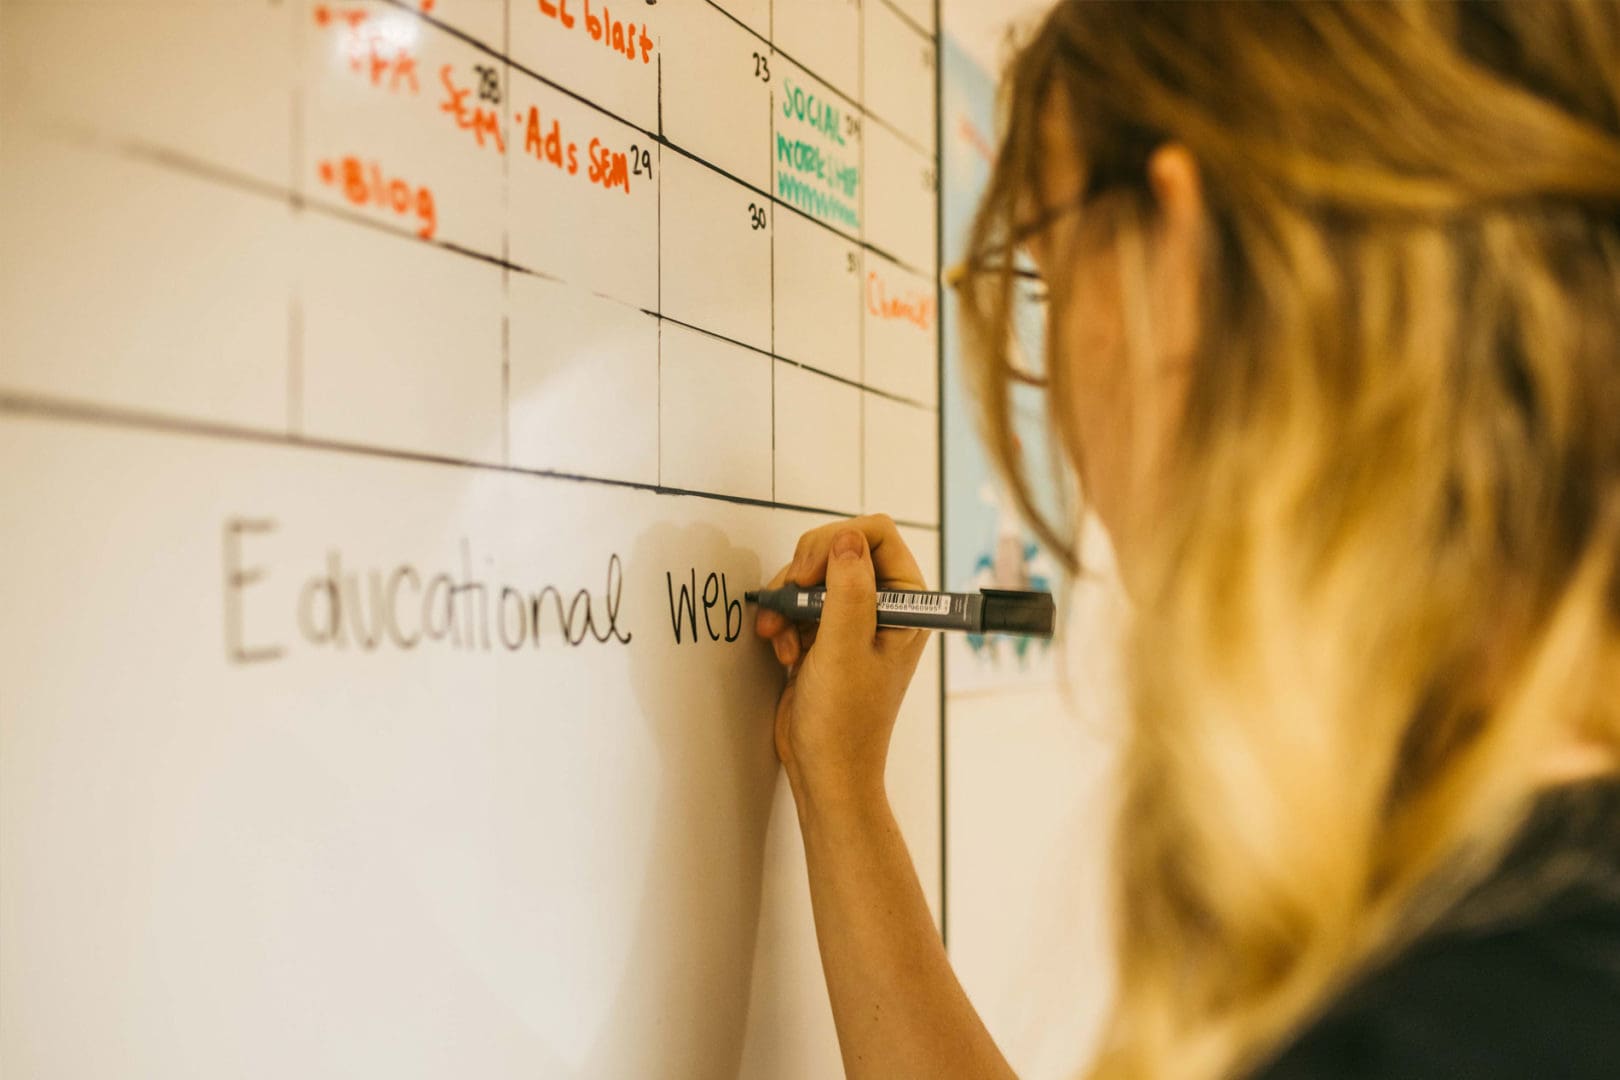 EC blast
23
28
SEM
SOCIAL
24
WORKSHOP
• Ads SEM
29
• Blog
30
31
Educational Web